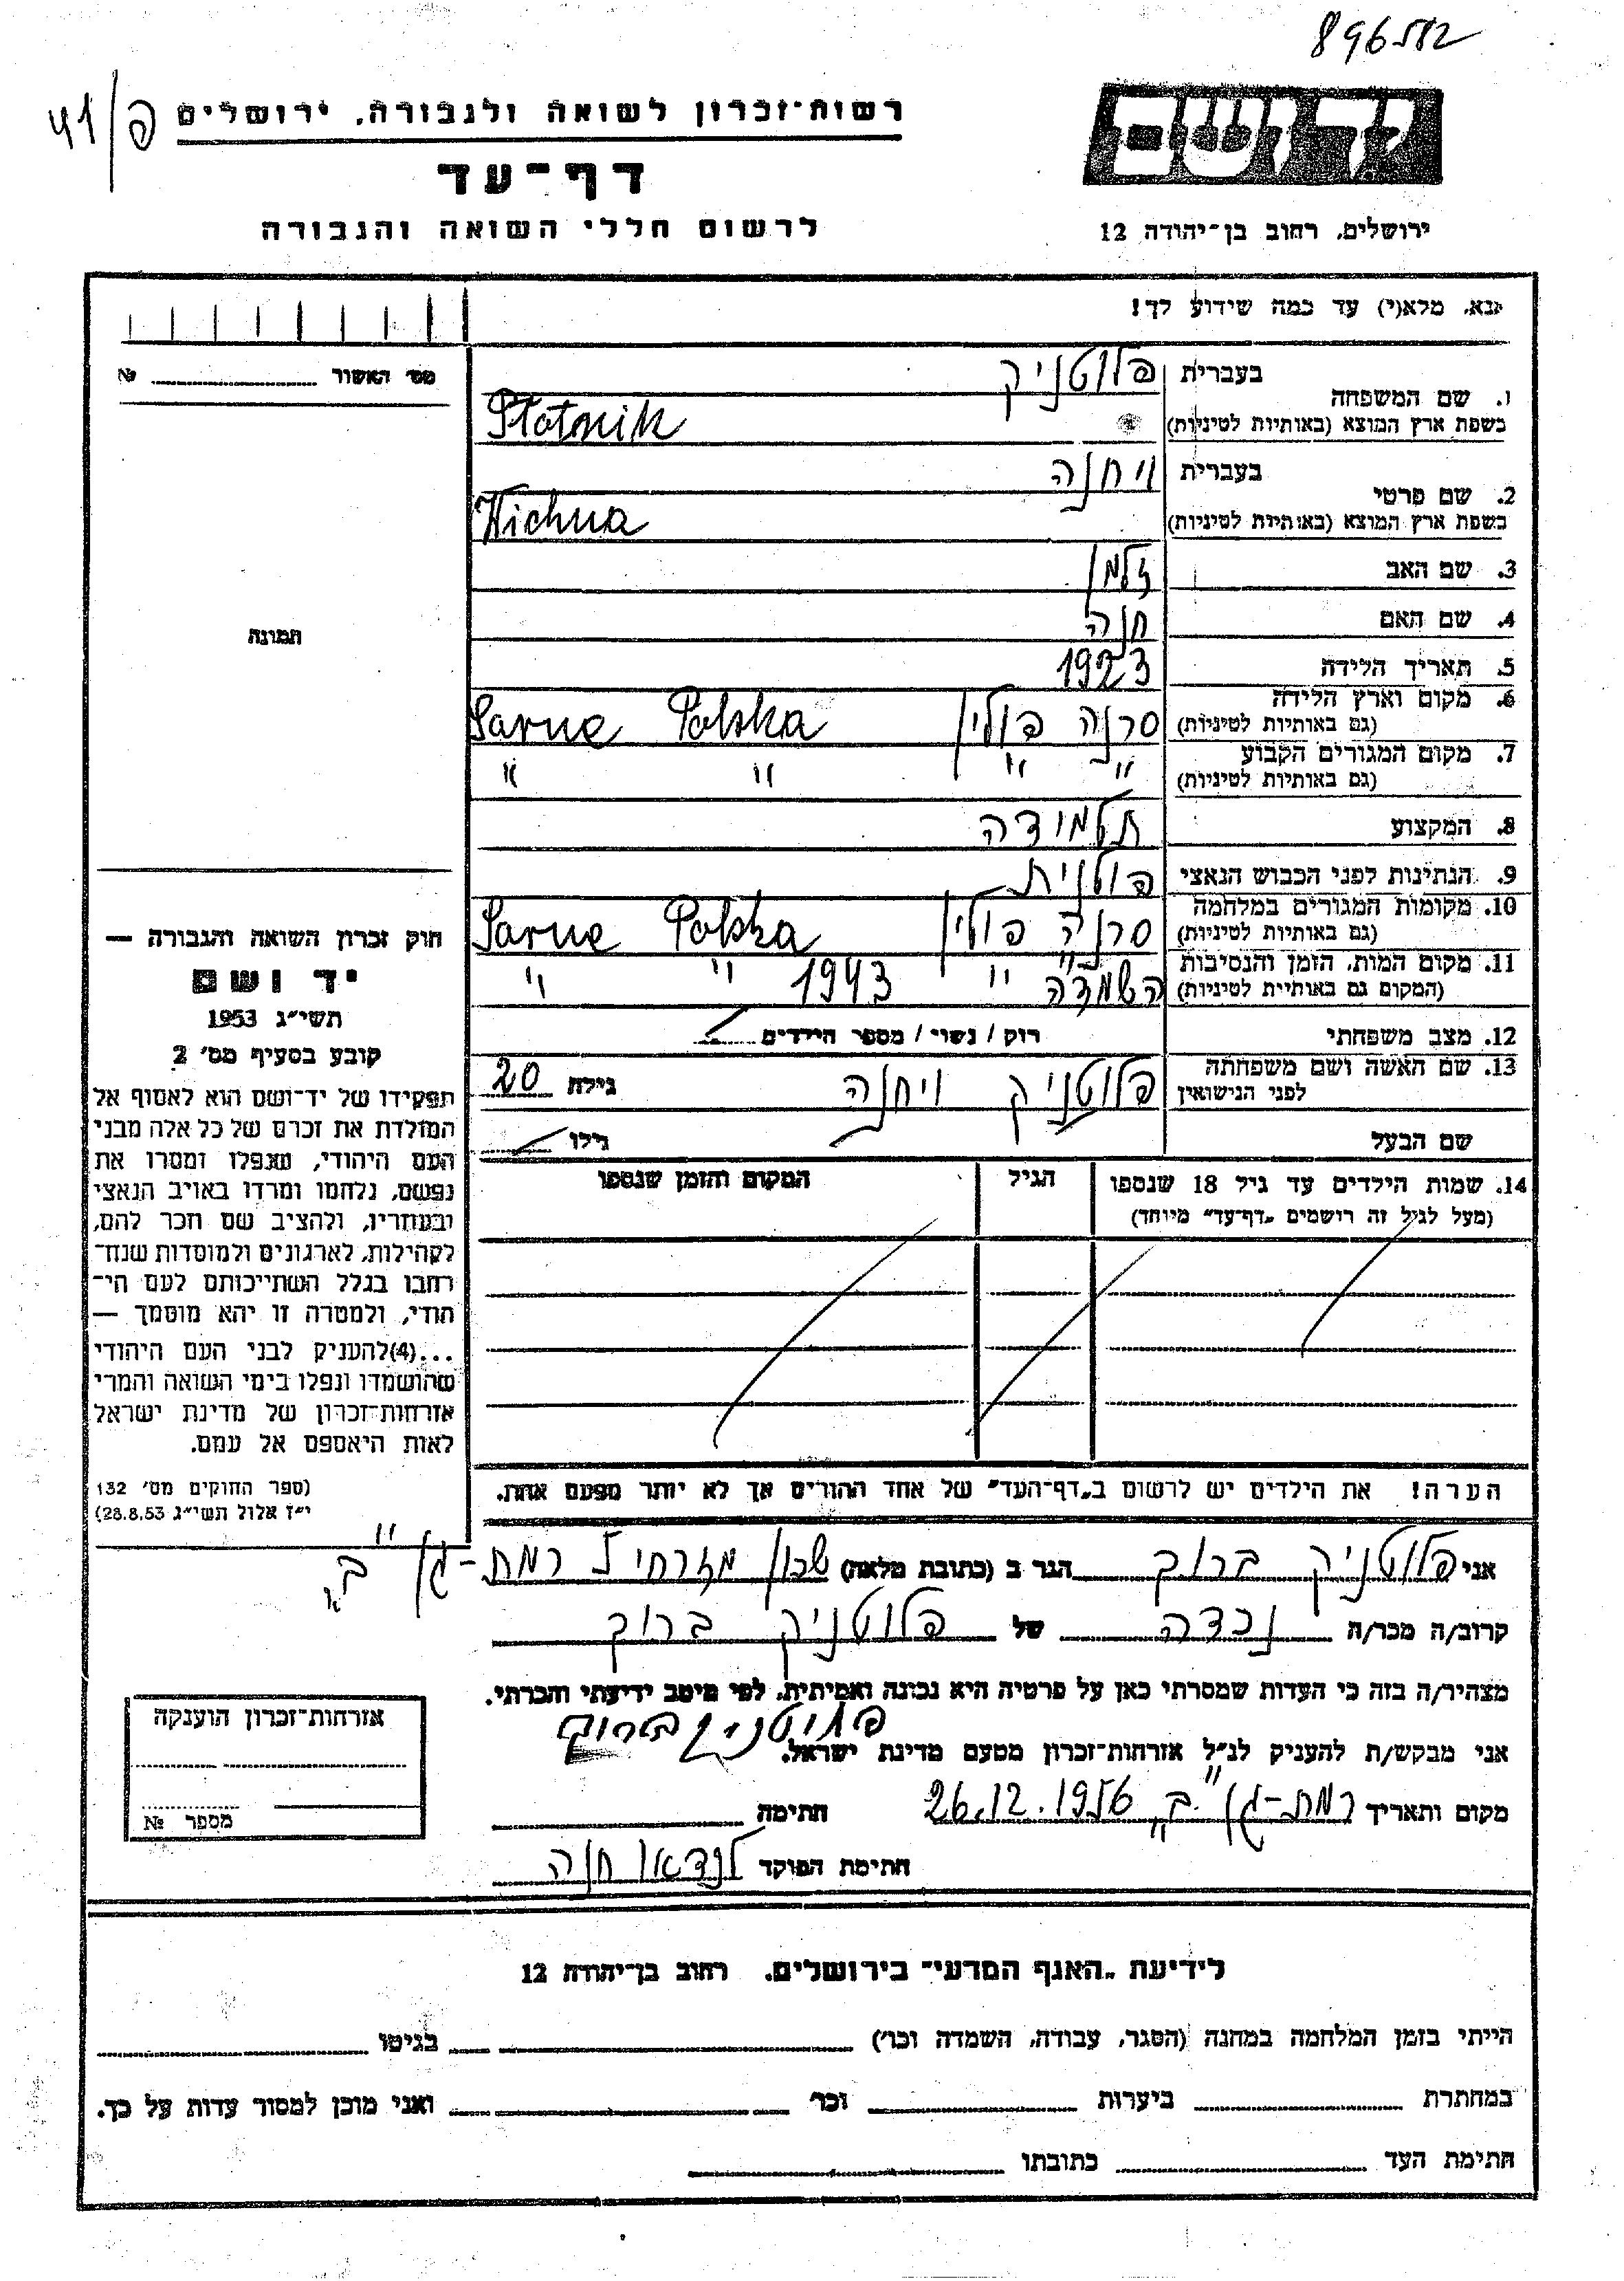 896582
פ/41
רשות־זכרון לשואה ולגבורה, ירושלים
דף־עד
לרשום חללי השואה והגבורה
יד ושם
ירושלים, רחוב בן־יהודה 12
נא, מלא(י) עד כמה שידוע לך!
מס׳ האשור № 
1. שם המשפחה
בעברית פלוטניק
בשפת ארץ המוצא (באותיות לטיניות) Plotnik
2. שם פרטי
בעברית ויחנה
בשפת ארץ המוצא (באותיות לטיניות) Wichna
3. שם האב זלמן
4. שם האם חנה
5. תאריך הלידה 1923
6. מקום וארץ הלידה סרנה פולין Sarne Polska
(גם באותיות לטיניות)
7. מקום המגורים הקבוע " " " "
(גם באותיות לטיניות)
8. המקצוע תלמידה
9. הנתינות לפני הכבוש הנאצי פולנית
10. מקומות המגורים במלחמה סרנה פולין Sarne Polska
(גם באותיות לטיניות)
11. מקום המות, הזמן והנסיבות " " " "
(המקום גם באותיות לטיניות) השמדה 1943
12. מצב משפחתי רוק / נשוי / מספר הילדים
13. שם האשה ושם משפחתה פלוטניק ויחנה גילה 20
לפני הנישואין
שם הבעל גילו
14. שמות הילדים עד גיל 18 שנספו הגיל המקום והזמן שנספו
(מעל לגיל זה רושמים „דף־עד״ מיוחד)
תמונה
חוק זכרון השואה והגבורה —
יד ושם
תשי״ג 1953
קובע בסעיף מס׳ 2
תפקידו של יד־ושם הוא לאסוף אל
המולדת את זכרם של כל אלה מבני
העם היהודי, שנפלו ומסרו את
נפשם, נלחמו ומרדו באויב הנאצי
ובעוזריו, ולהציב שם וזכר להם,
לקהילות, לארגונים ולמוסדות שנח־
רבו בגלל השתייכותם לעם הי־
הודי, ולמטרה זו יהא מוסמך —
...(4) להעניק לבני העם היהודי
שהושמדו ונפלו בימי השואה והמרי
אזרחות־זכרון של מדינת ישראל
לאות היאספם אל עמם.
(ספר החוקים מס׳ 132
י״ז אלול תשי״ג 28.8.53)
הערה! את הילדים יש לרשום ב„דף־העד״ של אחד ההורים אך לא יותר מפעם אחת.
אני פלוטניק ברוך הגר ב (כתובת מלאה) שכון מזרחי 5 רמת-גן „ב״
קרוב/ה מכר/ה נכדה של פלוטניק ברוך
מצהיר/ה בזה כי העדות שמסרתי כאן על פרטיה היא נכונה ואמיתית, לפי מיטב ידיעתי והכרתי.
פלוטניק ברוך
אני מבקש/ת להעניק לנ״ל אזרחות־זכרון מטעם מדינת ישראל.
מקום ותאריך רמת-גן „ב״ 26.12.1956 חתימה
חתימת הפוקד לנדאו חנה
אזרחות־זכרון הוענקה
מספר №
לידיעת „האגף המדעי״ בירושלים, רחוב בן־יהודה 12
הייתי בזמן המלחמה במחנה (הסגר, עבודה, השמדה וכו׳) בגיטו
במחתרת ביערות וכו׳ ואני מוכן למסור עדות על כך.
חתימת העד כתובתו